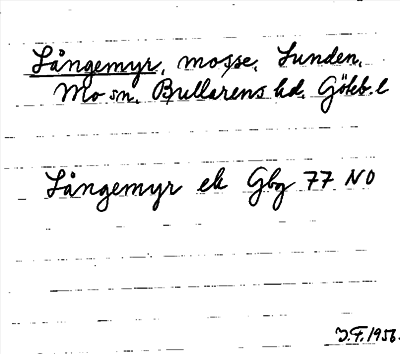 Långemyr, mosse. Lunden,
Mo sn. Bullarens hd. Göteb. l
Långemyr ek Gbg 77 NO
J.F. 1956.